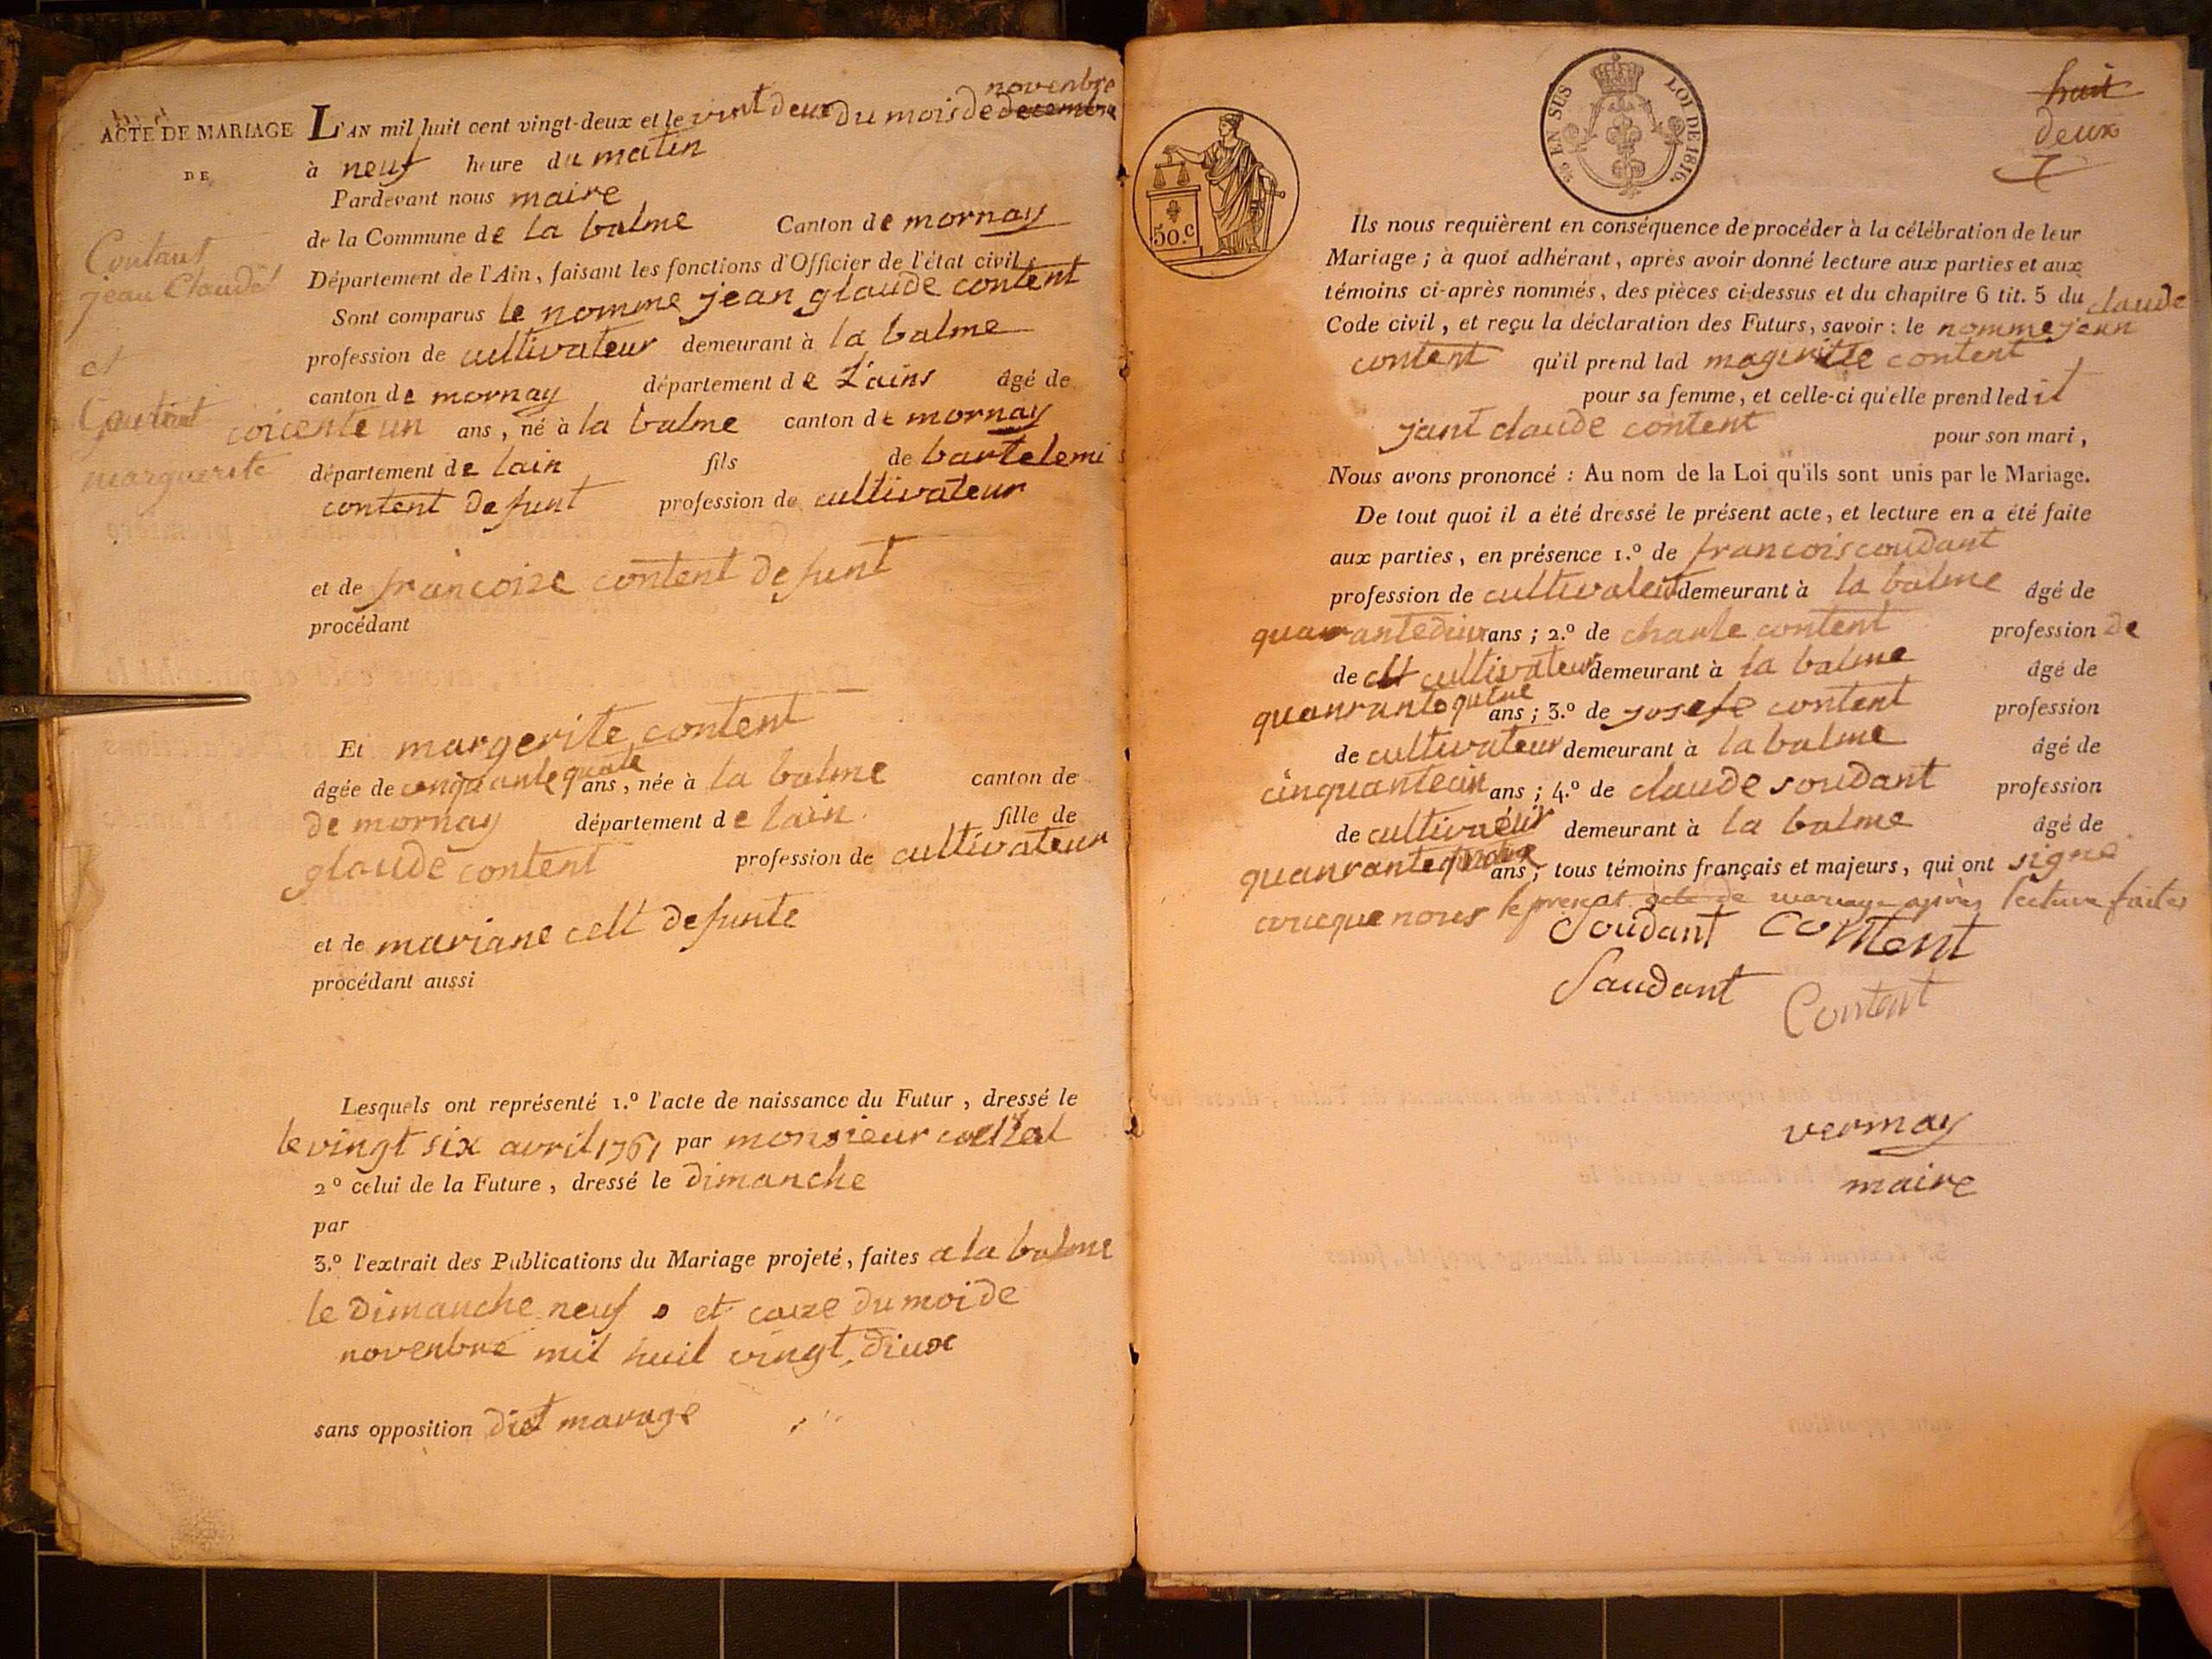 ACTE DE MARIAGE
DE
Contant
jean Claude
et
Contant
marguerite
L'AN mil huit cent vingt-deux et le vint deux du mois de decembre novenbre
à neuf heure du matin
Pardevant nous maire
de la Commune de la balme Canton de mornay
Département de l'Ain, faisant les fonctions d'Officier de l'état civil,
Sont comparus le nomme jean glaude content
profession de cultivateur demeurant à la balme
canton de mornay département de L'ains âgé de
coicente un ans, né à la balme canton de mornay
département de lain fils de bartelemi
content defunt profession de cultivateur
et de francoize content defunt
procédant
Et margerite content
âgée de cinquante quate ans, née à la balme canton de
de mornay département de lain fille de
glaude content profession de cultivateur
et de mariane celt defunte
procédant aussi
Lesquels ont représenté 1.º l'acte de naissance du Futur, dressé le
le vingt six avril 1761 par monsieur
2º celui de la Future, dressé le dimanche
par
3.º l'extrait des Publications du Mariage projeté, faites a la balme
le dimanche neuf et du moi de
novenbre mil huil vingt diux
sans opposition diet marage
50.c
25 EN SUS LOI DE 1816.
huit
deux
Ils nous requièrent en conséquence de procéder à la célébration de leur
Mariage; à quoi adhérant, après avoir donné lecture aux parties et aux
témoins ci-après nommés, des pièces ci-dessus et du chapitre 6 tit. 5 du
Code civil, et reçu la déclaration des Futurs, savoir: le nomme jean claude
content qu'il prend lad margeritte content
pour sa femme, et celle-ci qu'elle prend ledit
jant claude content pour son mari,
Nous avons prononcé: Au nom de la Loi qu'ils sont unis par le Mariage.
De tout quoi il a été dressé le présent acte, et lecture en a été faite
aux parties, en présence 1.º de francois coudant
profession de cultivateur demeurant à la balme âgé de
quarantediux ans; 2.º de charle content profession de
de clt cultivateur demeurant à la balme âgé de
ans; 3.º de josefe content profession
de cultivateur demeurant à la balme âgé de
cinquantecin ans; 4.º de claude soudant profession
de cultivateur demeurant à la balme âgé de
ans; tous témoins français et majeurs, qui ont signe
avecque nous le present acte de mariage après lecture faites
Soudant content
Saudant Contant
vernay
maire